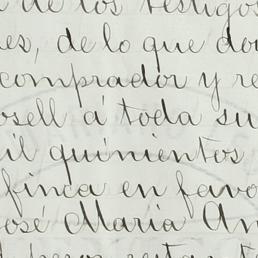 de los testigos
es, de lo que do
comprador y re
osell a toda su
il quinientos
finca en favo
osé Maria An